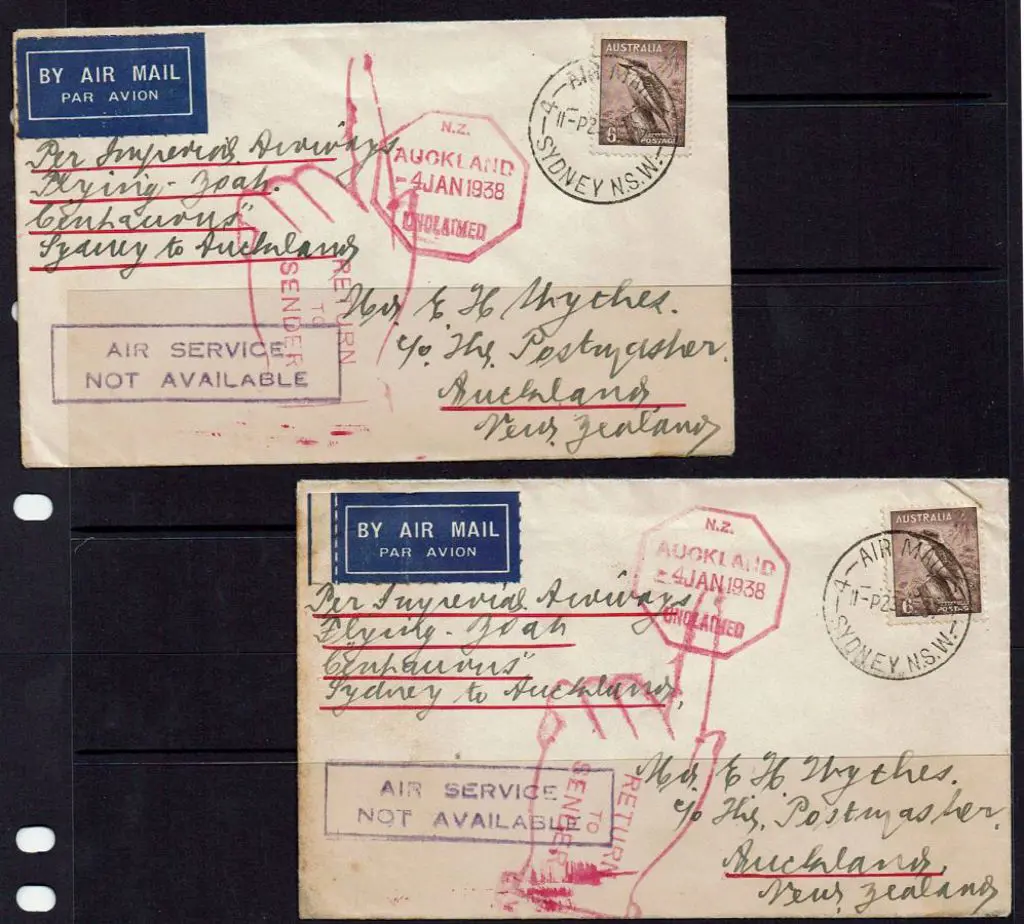 BY AIR MAIL
PAR AVION
Per Imperial Airways
Flying-Boat
Centaurus"
Sydney to Auckland
N.Z.
AUCKLAND
-4JAN1938
UNCLAIMED
4-AIR MAIL
11-P23
SYDNEY N.S.W.-
AUSTRALIA
6D
POSTAGE
RETURN
TO
SENDER
AIR SERVICE
NOT AVAILABLE
Mr. E. H. Wyches.
c/o The Postmaster.
Auckland
New Zealand
BY AIR MAIL
PAR AVION
Per Imperial Airways
Flying-Boat
Centaurus"
Sydney to Auckland,
N.Z.
AUCKLAND
-4JAN1938
UNCLAIMED
4-AIR MAIL
11-P23
SYDNEY N.S.W.-
AUSTRALIA
6D
POSTAGE
RETURN
TO
SENDER
AIR SERVICE
NOT AVAILABLE
Mr. E. H. Wyches.
c/o The Postmaster.
Auckland,
New Zealand